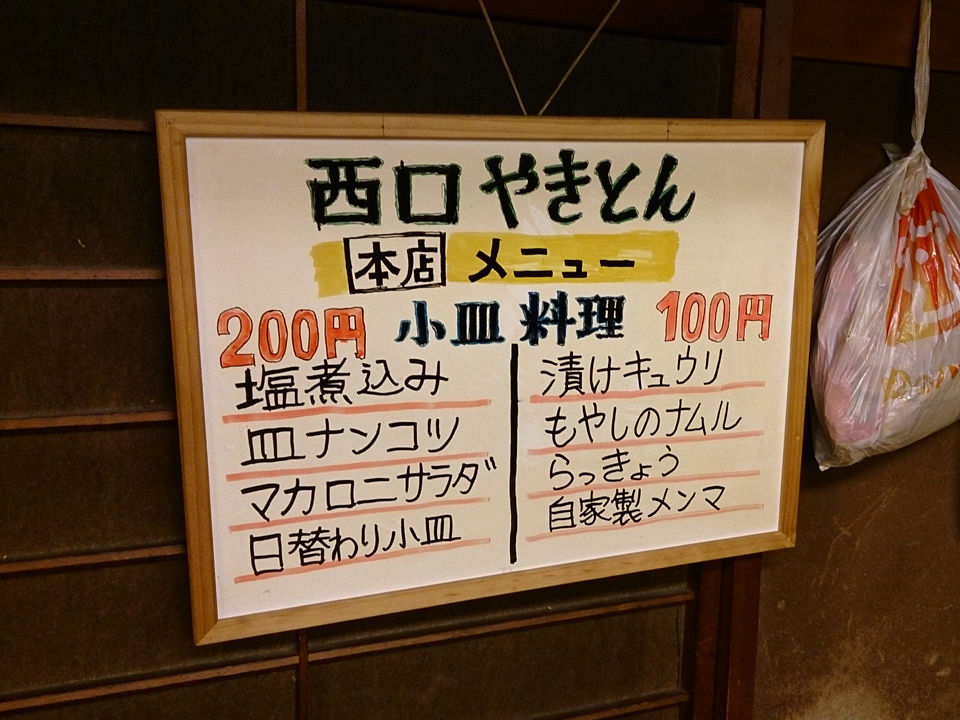 西口やきとん
本店 メニュー
200円 小皿料理 100円
塩煮込み
皿ナンコツ
マカロニサラダ
日替わり小皿
漬けキュウリ
もやしのナムル
らっきょう
自家製メンマ